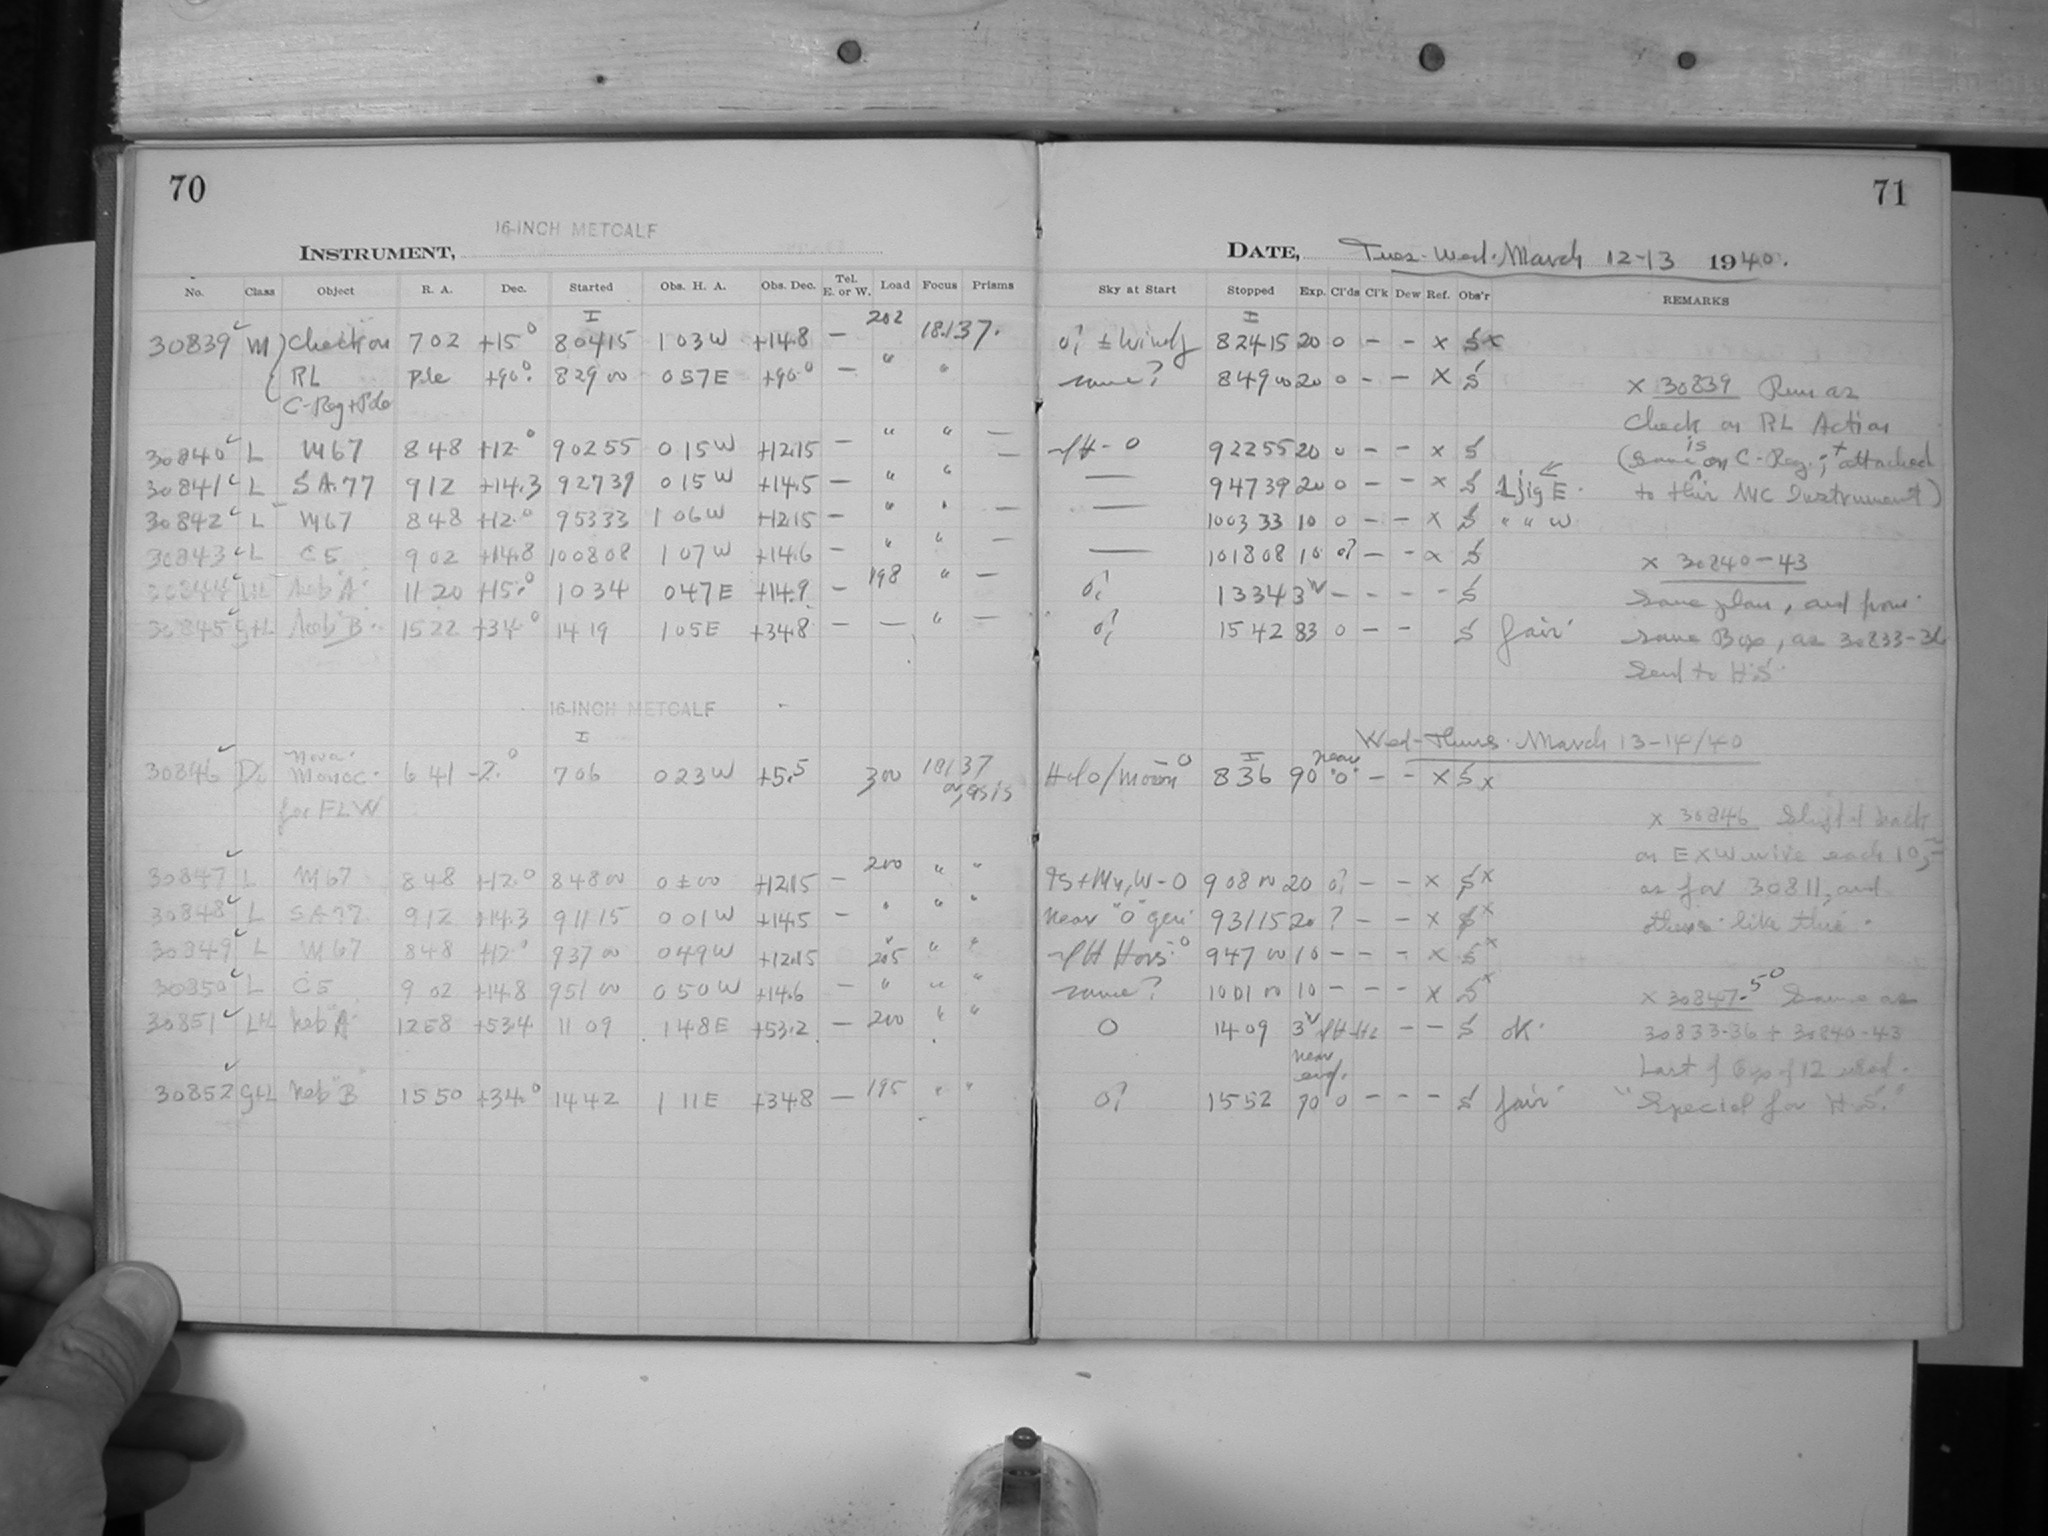 70
16-INCH METCALF
INSTRUMENT,
No. Class Object R. A. Dec. Started Obs. H. A. Obs. Dec. Tel. E. or W. Load Focus Prisms
I
30839 M Check on 7 02 +15° 8 04 15 1 03 W +14.8 — 202 18.137.
RL Pole +90° 8 29 00 0 57 E +90° — " "
C-Reg + Pole
30840 L M67 8 48 +12° 9 02 55 0 15 W +12.15 — " " —
30841 L SA 77 9 12 +14.3 9 27 39 0 15 W +14.5 — " "
30842 L M67 8 48 +12° 9 53 33 1 06 W +12.15 — " " —
30843 L C5 9 02 +14.8 10 08 08 1 07 W +14.6 — " " —
30844 LH Neb "A" 11 20 +15° 10 34 0 47 E +14.9 — 198 " —
30845 G+L Neb "B" 15 22 +34° 14 19 1 05 E +34.8 — — " —
16-INCH METCALF
I
30846 Nova Monoc. 6 41 -2° 7 06 0 23 W +5.5 300 18137
for FLW
30847 L M67 8 48 +12° 8 48 00 0 ± 00 +12.15 — 200 " "
30848 L SA 77 9 12 +14.3 9 11 15 0 01 W +14.5 — " " "
30849 L M67 8 48 +12° 9 37 00 0 49 W +12.15 205 " "
30850 L C5 9 02 +14.8 9 51 00 0 50 W +14.6 — " " "
30851 LH Neb "A" 12 58 +53.4 11 09 1 48 E +53.2 — 200 " "
30852 G+L Neb "B" 15 50 +34° 14 42 1 11 E +34.8 — 195 " "
71
DATE, Tues-Wed. March 12-13 1940.
Sky at Start Stopped Exp. Cl'ds Cl'k Dew Ref. Obs'r REMARKS
I
0? ± Windy 8 24 15 20 0 — — x S x
same? 8 49 00 20 0 — — x S
x 30839 Run as
Check on RL Action
(same is on C-Reg.; + attached
to this MC Instrument)
0 9 22 55 20 0 — — x S
— 9 47 39 20 0 — — x S 1 jig E.
— 10 03 33 10 0 — — x S " " W
— 10 18 08 10 0? — — x S
0? 13 34 3 — — — — S
0? 15 42 83 0 — — S fair
x 30840-43
Same plan, and from
same Box, as 30833-36
Send to H.S.
Wed-Thurs. March 13-14/40
I
8 36 90 near "0" — — x S x
x 30846
on E x W wire each 10,
as for 30811, and
others like this.
9 08 00 20 0? — — x S x
near "0" 9 31 15 20 ? — — x S x
9 47 00 10 — — — x S x
same? 10 01 00 10 — — — x S x
0 14 09 3 — — S ok.
near end.
0? 15 52 70 0 — — — S fair
x 30847-50 Same as
30833-36 + 30840-43
Last of Exp of 12
"Special for H.S."